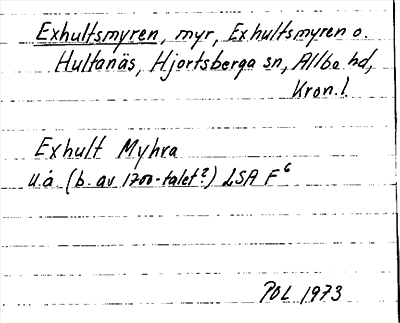 Exhultsmyren, myr, Exhultsmyren o.
Hultanäs, Hjortsberga sn, Allbo hd,
Kron. l.
Exhult Myhra
u.å (b. av 1700-talet?) LSA F⁶
POL 1973